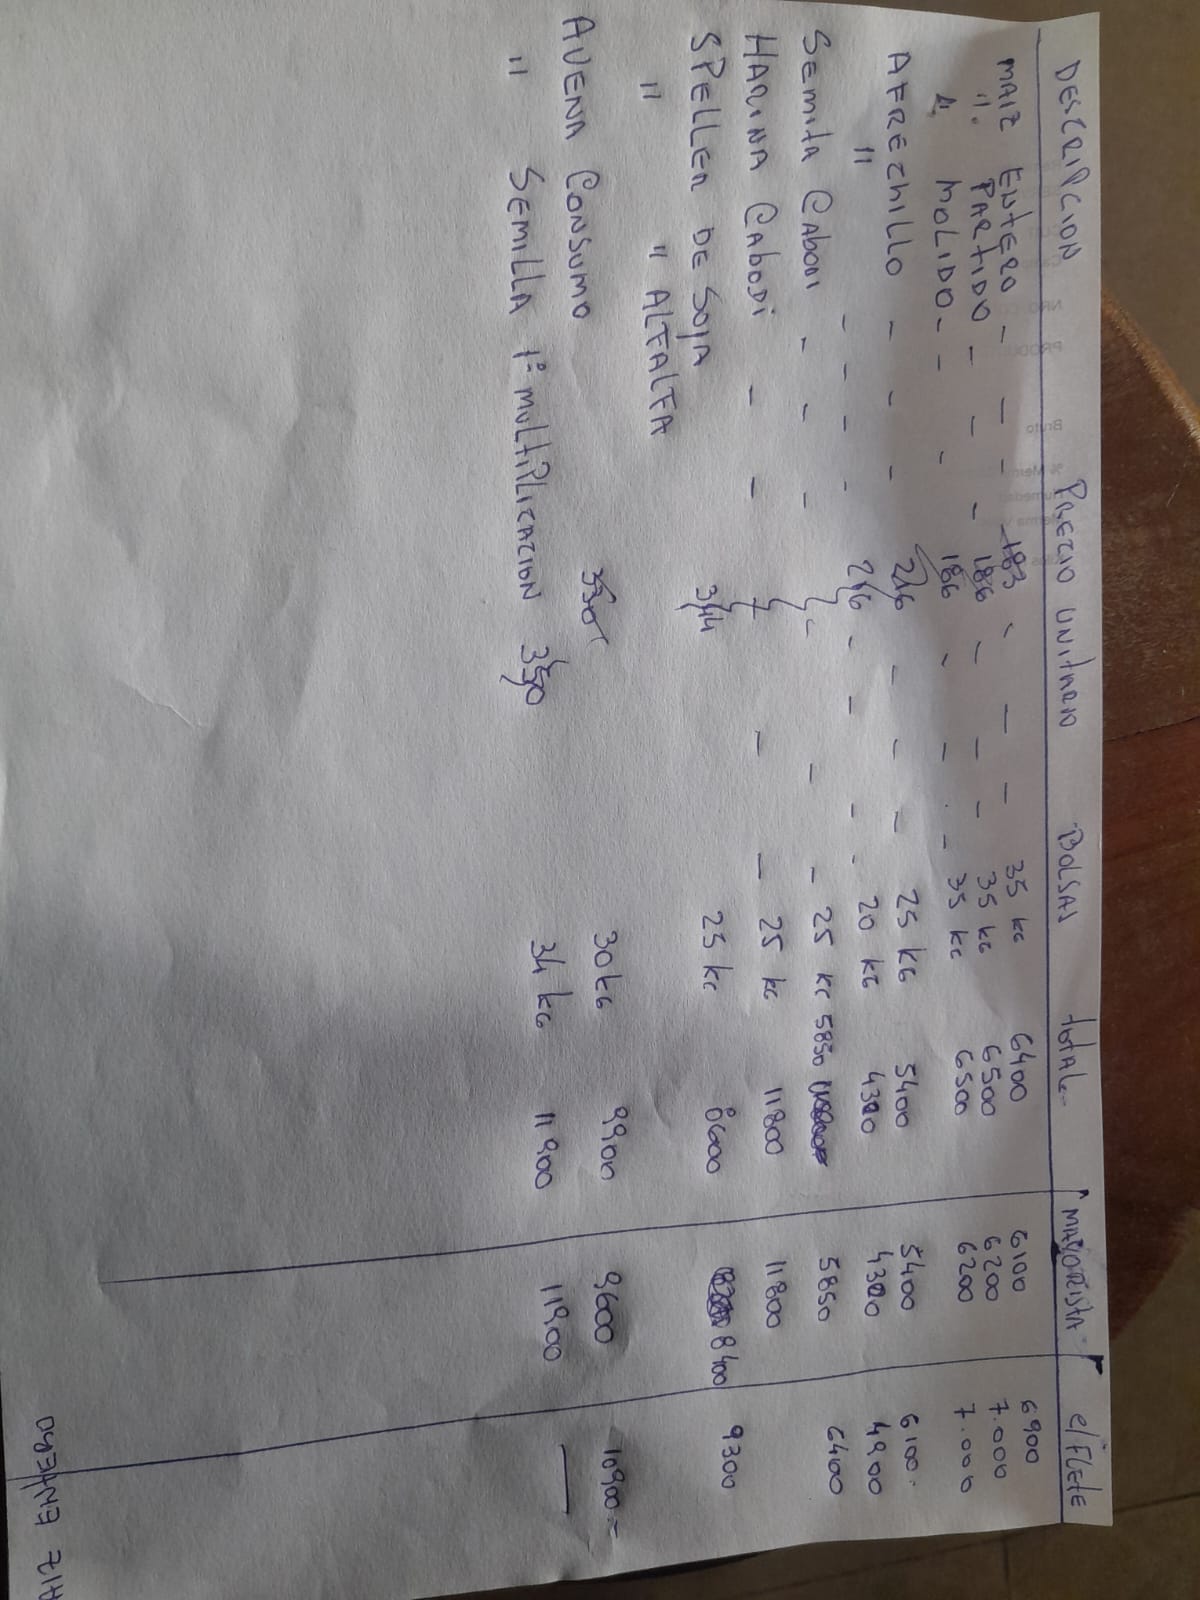 DESCRIPCION PRECIO UNITARIO BOLSAS TOTAL MAYORISTA c/ FLETE
MAIZ ENTERO - - - - 183 - - - 35 KG 6400 6100 6900
". PARTIDO - - - 186 - - - 35 KG 6500 6200 7.000
" MOLIDO - - - 186 - - . - 35 KG 6500 6200 7.000
AFRECHILLO - - - 216 - - - 25 KG 5400 5400 6100.
" - - - - 216 - - - - 20 KG 4300 4300 4900
SEMITA CABODI - - - - - - 25 KG 5850 5850 6400
HARINA CABODI - - - - 25 KG 11800 11800
SPELLER DE SOJA 344 25 KG 8600 8400 9300
" " ALFALFA
AVENA CONSUMO 330 30 KG 9900 9600 10900.-
" SEMILLA 1º MULTIPLICACION 350 34 KG 11900 11900 —
AIZ ENTERO